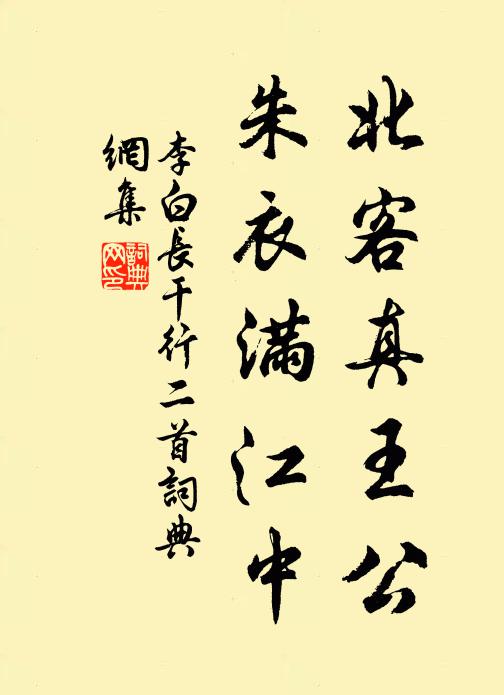 北客真王公
朱衣滿江中
李白長干行二首詞典
網集
詞典
网印